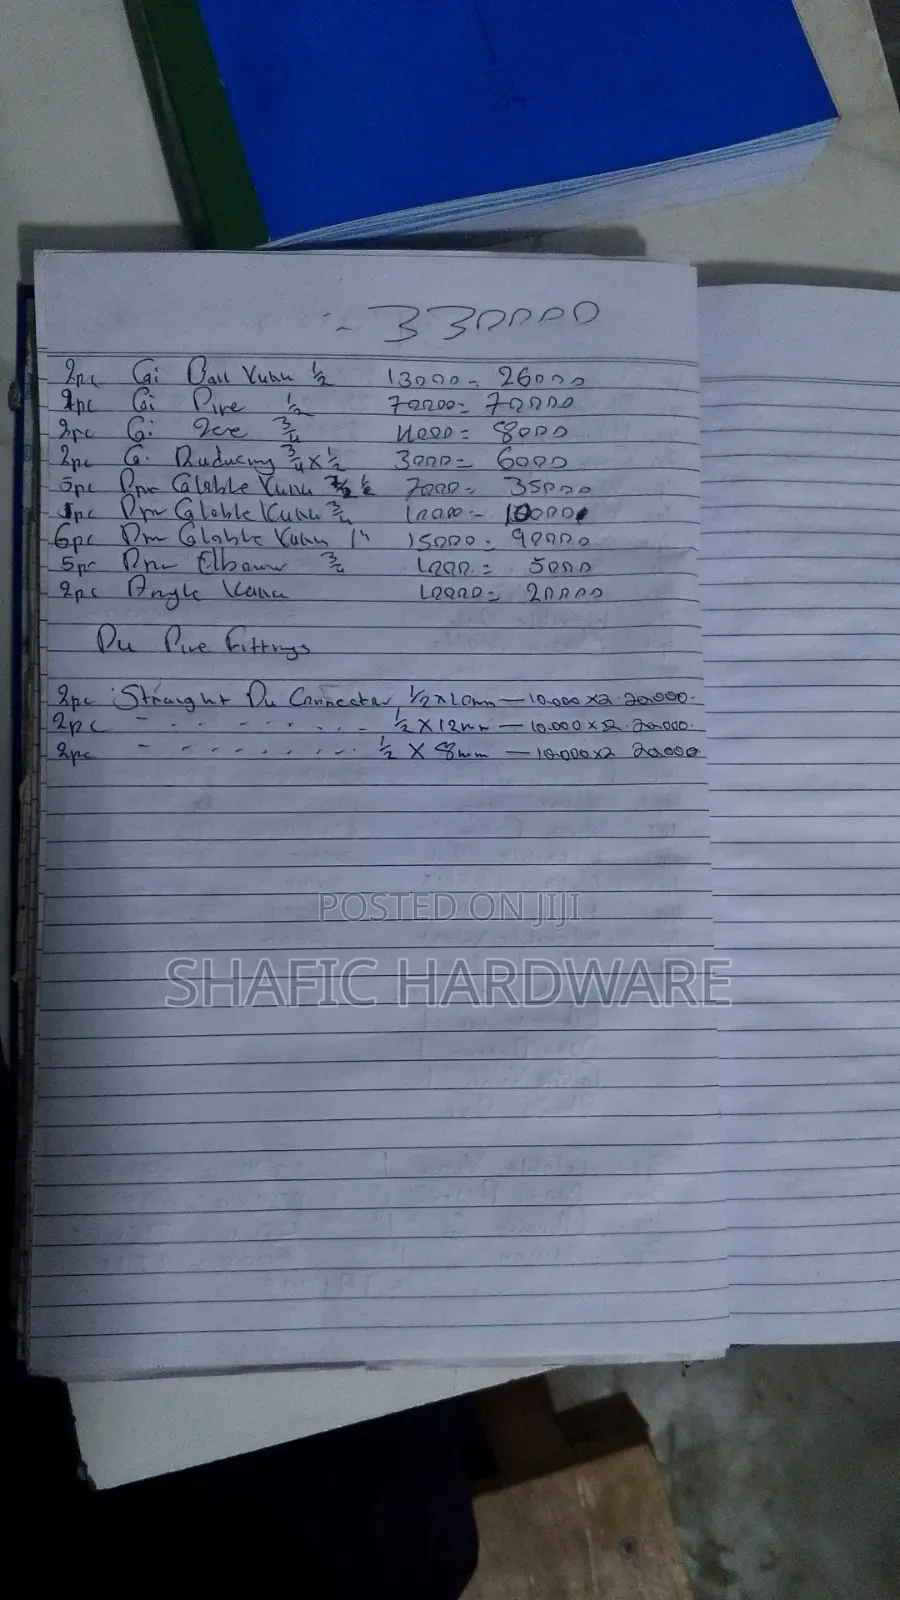 :- 330000
2pc Gi Ball Valve 1/2 13000= 26000
1pc Gi Pipe 1/2 70000= 70000
2pc Gi Tee 3/4 4000= 8000
2pc Gi Reducing 3/4 x 1/2 3000= 6000
5pc Ppr Globle Valve 1/2 7000= 35000
1pc Ppr Globle Valve 3/4 10000= 10000
6pc Ppr Globle Valve 1" 15000= 90000
5pc Ppr Elbow 3/4 1000= 5000
2pc Angle Valve 10000= 20000
Pu Pipe Fittings
2pc Straight Pu Connector 1/2 x 10mm — 10.000 x 2. 20.000.
2pc - . . - . . . . . - 1/2 x 12mm — 10.000 x 2. 20.000.
2pc - . . . . . . . . - 1/2 x 8mm — 10.000 x 2 20.000
POSTED ON JIJI
SHAFIC HARDWARE